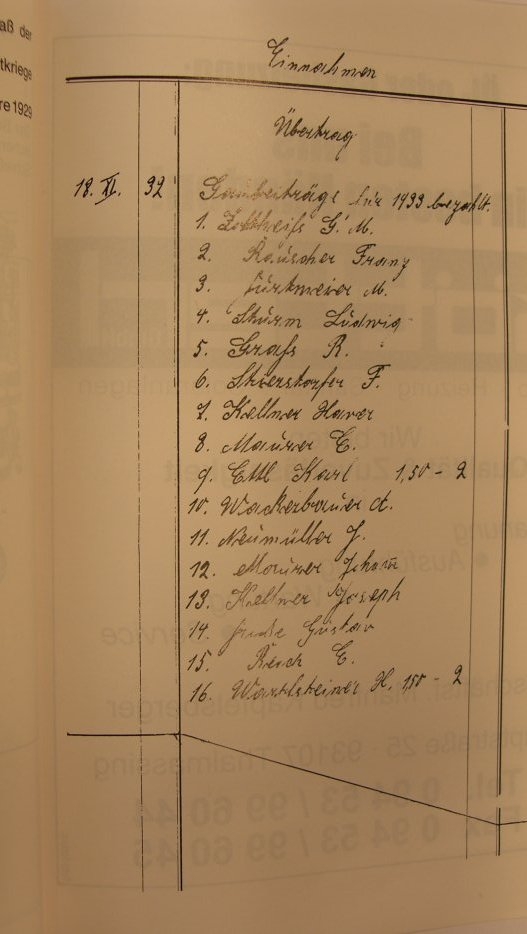 aß der
tkriege
re 1929
Einnahmen
Übertrag
18. XI. 32 Gaubeiträge für 1933 bezahlt.
1. G. M.
2. Räuscher Franz
3. M.
4. Sturm Ludwig
5. Grafs R.
6. Stierstorfer F.
7. Kellner Xaver
8. Maurer E.
9. Ettl Karl 1,50 - 2
10. Wackerbauer A.
11. Neumüller J.
12. Maurer Johann
13. Kellner Joseph
14. Gustav
15. Reich E.
16. H. 1,50 - 2